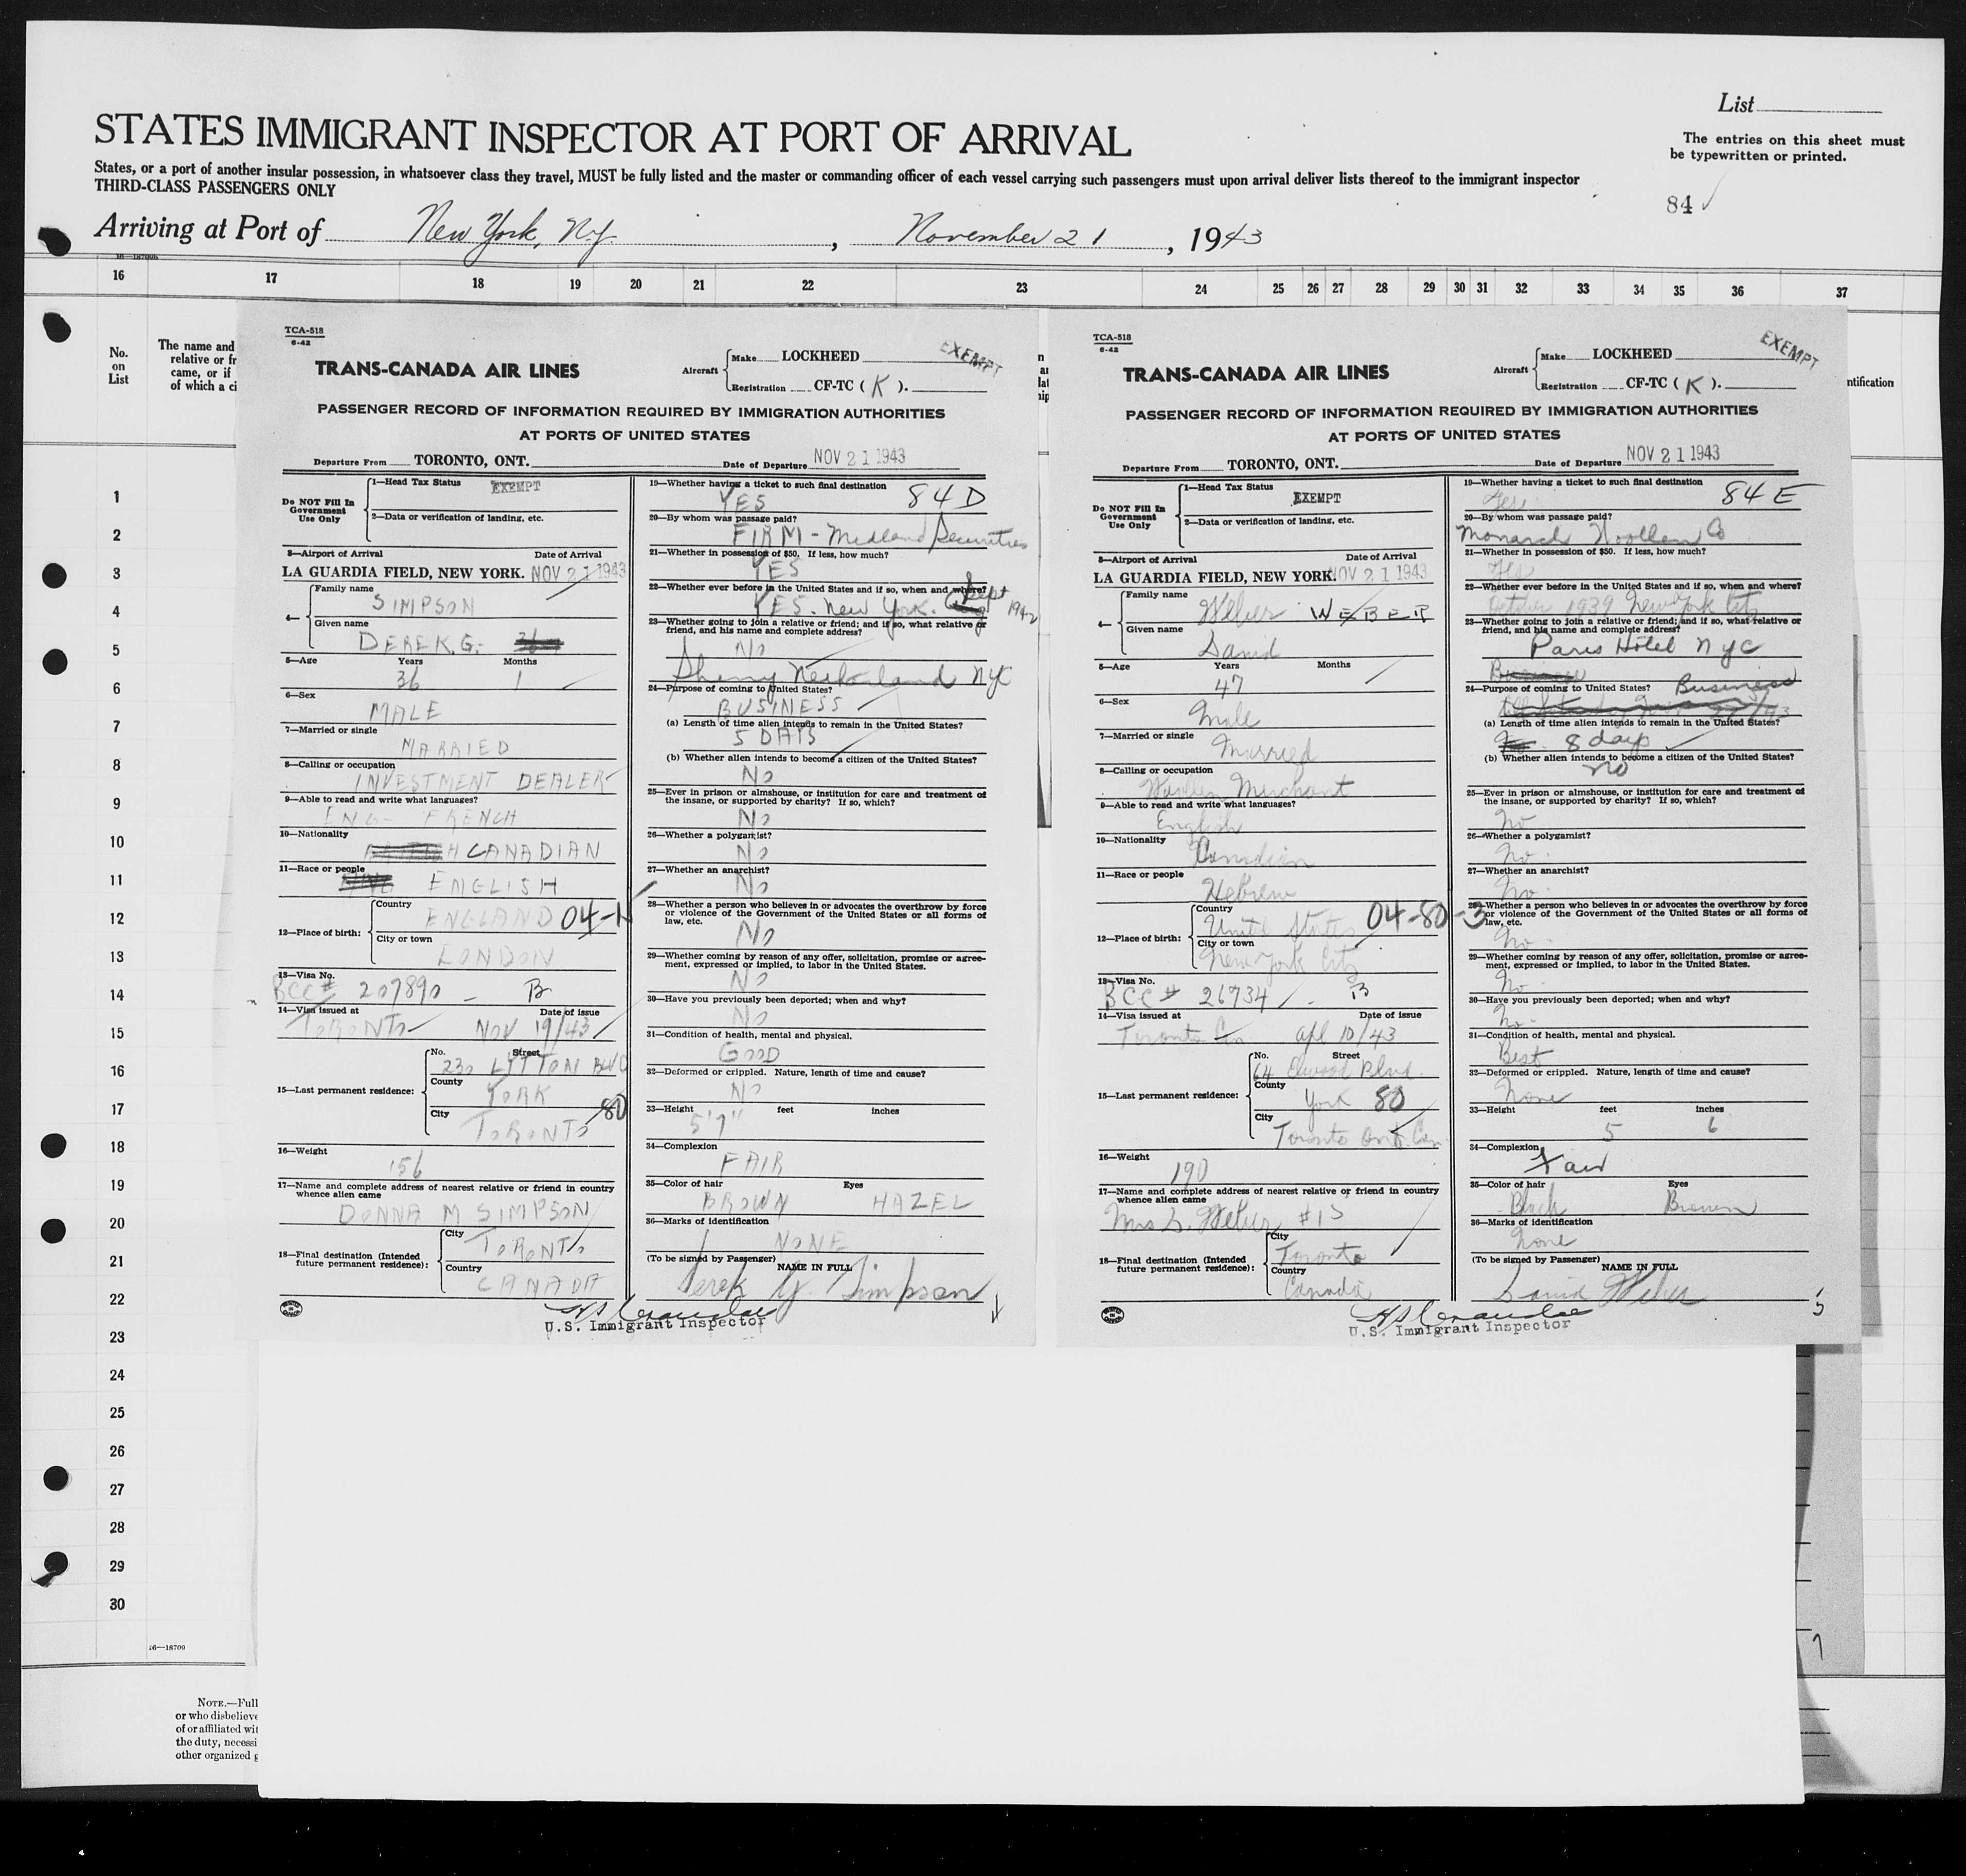 List
STATES IMMIGRANT INSPECTOR AT PORT OF ARRIVAL
The entries on this sheet must
be typewritten or printed.
States, or a port of another insular possession, in whatsoever class they travel, MUST be fully listed and the master or commanding officer of each vessel carrying such passengers must upon arrival deliver lists thereof to the immigrant inspector
THIRD-CLASS PASSENGERS ONLY
84
Arriving at Port of New York, N.Y. , November 21 , 1943
16 17 18 19 20 21 22 23 24 25 26 27 28 29 30 31 32 33 34 35 36 37
No.
on
List
The name and
relative or fr
came, or if
of which a ci
ntification
1
2
3
4
5
6
7
8
9
10
11
12
13
14
15
16
17
18
19
20
21
22
23
24
25
26
27
28
29
30
16—18709
NOTE.—Full
or who disbelieve
of or affiliated wit
the duty, necessi
other organized g
TCA-518
6-42
TRANS-CANADA AIR LINES
Aircraft Make LOCKHEED
Registration CF-TC ( K ).
EXEMPT
PASSENGER RECORD OF INFORMATION REQUIRED BY IMMIGRATION AUTHORITIES
AT PORTS OF UNITED STATES
Departure From TORONTO, ONT. Date of Departure NOV 21 1943
Do NOT Fill In
Government
Use Only
1—Head Tax Status EXEMPT
2—Data or verification of landing, etc.
3—Airport of Arrival Date of Arrival
LA GUARDIA FIELD, NEW YORK. NOV 21 1943
4— Family name
SIMPSON
Given name
DEREK.G.
5—Age Years Months
36 1
6—Sex
MALE
7—Married or single
MARRIED
8—Calling or occupation
INVESTMENT DEALER
9—Able to read and write what languages?
ENG- FRENCH
10—Nationality
CANADIAN
11—Race or people
ENGLISH
12—Place of birth: Country
ENGLAND 04-1
City or town
LONDON
13—Visa No.
BCC# 207890 - B
14—Visa issued at Date of issue
TORONTO NOV 19/43
15—Last permanent residence: No. Street
230 LYTTON BLVD
County
YORK
City 80
TORONTO
16—Weight
156
17—Name and complete address of nearest relative or friend in country
whence alien came
DONNA M SIMPSON
18—Final destination (Intended
future permanent residence): City
TORONTO
Country
CANADA
19—Whether having a ticket to such final destination
YES 84D
20—By whom was passage paid?
FIRM - Midland Securities
21—Whether in possession of $50. If less, how much?
YES
22—Whether ever before in the United States and if so, when and where?
YES. New York. Sept 1942
23—Whether going to join a relative or friend; and if so, what relative or
friend, and his name and complete address?
NO
Sherry Netherland NYC
24—Purpose of coming to United States?
BUSINESS
(a) Length of time alien intends to remain in the United States?
5 DAYS
(b) Whether alien intends to become a citizen of the United States?
No
25—Ever in prison or almshouse, or institution for care and treatment of
the insane, or supported by charity? If so, which?
No
26—Whether a polygamist?
No
27—Whether an anarchist?
No
28—Whether a person who believes in or advocates the overthrow by force
or violence of the Government of the United States or all forms of
law, etc.
No
29—Whether coming by reason of any offer, solicitation, promise or agree-
ment, expressed or implied, to labor in the United States.
No
30—Have you previously been deported; when and why?
No
31—Condition of health, mental and physical.
GOOD
32—Deformed or crippled. Nature, length of time and cause?
No
33—Height feet inches
5'7"
34—Complexion
FAIR
35—Color of hair Eyes
BROWN HAZEL
36—Marks of identification
NONE
(To be signed by Passenger) NAME IN FULL
Derek G. Simpson
U.S. Immigrant Inspector
TCA-518
6-42
TRANS-CANADA AIR LINES
Aircraft Make LOCKHEED
Registration CF-TC ( K ).
EXEMPT
PASSENGER RECORD OF INFORMATION REQUIRED BY IMMIGRATION AUTHORITIES
AT PORTS OF UNITED STATES
Departure From TORONTO, ONT. Date of Departure NOV 21 1943
Do NOT Fill In
Government
Use Only
1—Head Tax Status
EXEMPT
2—Data or verification of landing, etc.
3—Airport of Arrival Date of Arrival
LA GUARDIA FIELD, NEW YORK. NOV 21 1943
4— Family name
Weber WEBER
Given name
David
5—Age Years Months
47
6—Sex
Male
7—Married or single
Married
8—Calling or occupation
Woolen Merchant
9—Able to read and write what languages?
English
10—Nationality
Canadian
11—Race or people
Hebrew
12—Place of birth: Country
United States 04-80-3
City or town
New York City
13—Visa No.
BCC # 26734 - B
14—Visa issued at Date of issue
Toronto Apl 10/43
15—Last permanent residence: No. Street
64 Elwood Blvd.
County
York 80
City
Toronto Ont. Can
16—Weight
190
17—Name and complete address of nearest relative or friend in country
whence alien came
Mrs D. Weber #15
18—Final destination (Intended
future permanent residence): City
Toronto
Country
Canada
19—Whether having a ticket to such final destination
Yes 84E
20—By whom was passage paid?
Monarch Woollen Co
21—Whether in possession of $50. If less, how much?
Yes
22—Whether ever before in the United States and if so, when and where?
October 1939 New York City
23—Whether going to join a relative or friend; and if so, what relative or
friend, and his name and complete address?
Paris Hotel NYC
Business
24—Purpose of coming to United States? Business
(a) Length of time alien intends to remain in the United States?
8 days
(b) Whether alien intends to become a citizen of the United States?
no
25—Ever in prison or almshouse, or institution for care and treatment of
the insane, or supported by charity? If so, which?
No
26—Whether a polygamist?
No.
27—Whether an anarchist?
No.
28—Whether a person who believes in or advocates the overthrow by force
or violence of the Government of the United States or all forms of
law, etc.
No.
29—Whether coming by reason of any offer, solicitation, promise or agree-
ment, expressed or implied, to labor in the United States.
No.
30—Have you previously been deported; when and why?
No.
31—Condition of health, mental and physical.
Best
32—Deformed or crippled. Nature, length of time and cause?
None
33—Height feet inches
5 6
34—Complexion
Fair
35—Color of hair Eyes
Black Brown
36—Marks of identification
None
(To be signed by Passenger) NAME IN FULL
David Weber
U.S. Immigrant Inspector